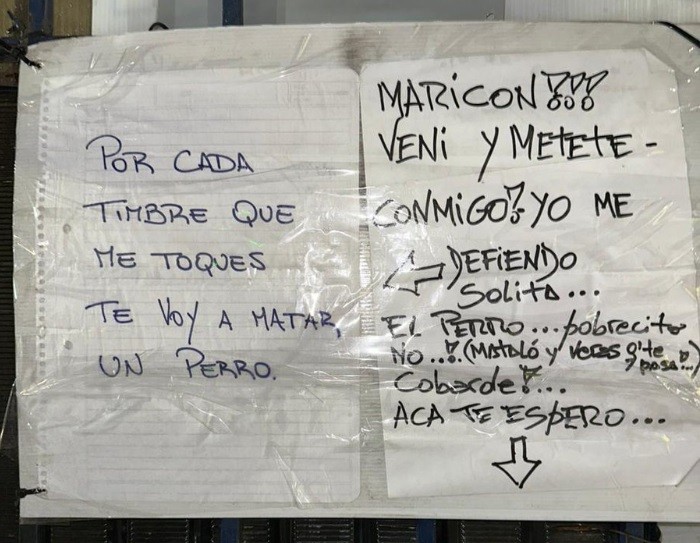 POR CADA
TIMBRE QUE
ME TOQUES
TE VOY A MATAR,
UN PERRO.
MARICON!!!
VENI Y METETE -
CONMIGO! YO ME
DEFIENDO
SOLITA...
EL PERRO... pobrecito
NO..! (MATALÓ y verás q' te
pasa!..)
Cobarde!...
ACA TE ESPERO...